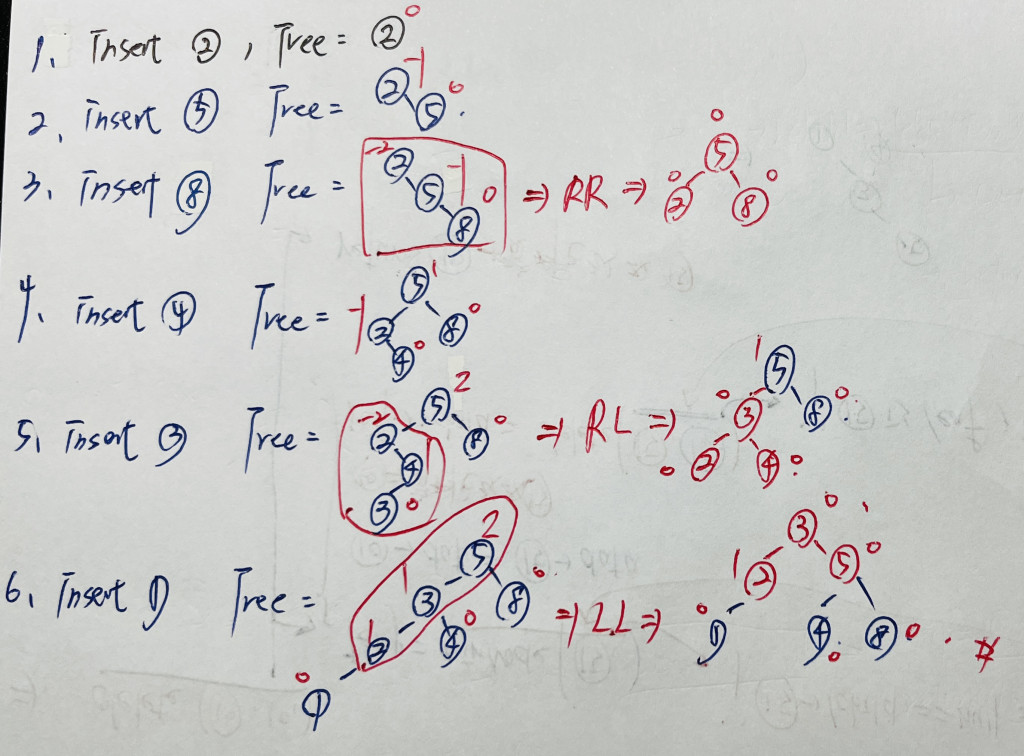 1. Insert ②, Tree = ② 0
2. Insert ⑤ Tree = ② -1 ⑤ 0.
3. Insert ⑧ Tree = -2 ② ⑤ -1 ⑧ 0 ⇒ RR ⇒ 0 ⑤ 0 ② ⑧ 0
4. Insert ④ Tree = ⑤ 1 -1 ② ⑧ 0 ④ 0
5. Insert ③ Tree = ⑤ 2 -2 ② ⑧ 0 ④ 1 ③ 0 ⇒ RL ⇒ 1 ⑤ 0 ③ ⑧ 0 0 ② ④ 0
6. Insert ① Tree = 2 ⑤ 1 ③ ⑧ 0 1 ② ④ 0 0 ① ⇒ LL ⇒ ③ 0 1 ② ⑤ 0 0 ① ④ 0 ⑧ 0